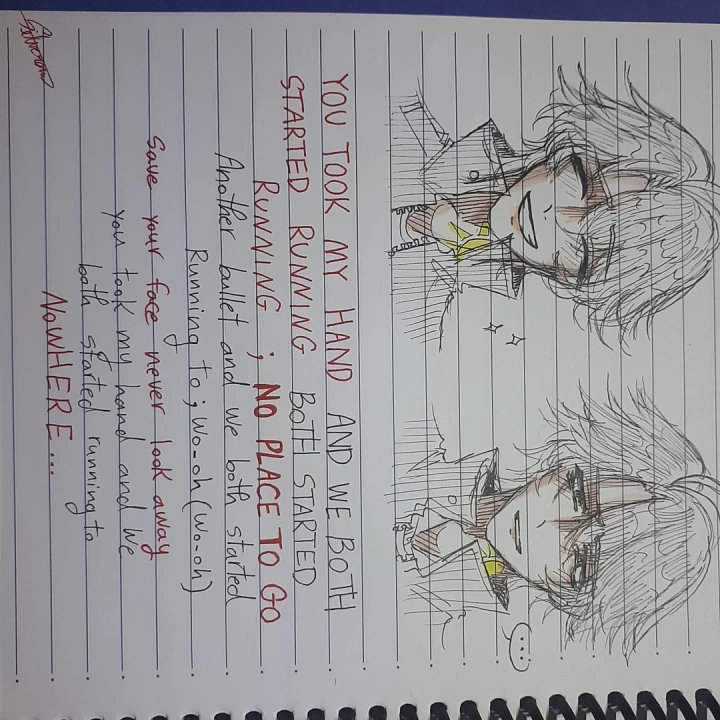 ...
YOU TOOK MY HAND AND WE BOTH
STARTED RUNNING BOTH STARTED
RUNNING ; NO PLACE TO GO
Another bullet and we both started
Running to ; Wo-oh (Wo-oh)
Save your face never look away
You took my hand and we
both started running to
NOWHERE...